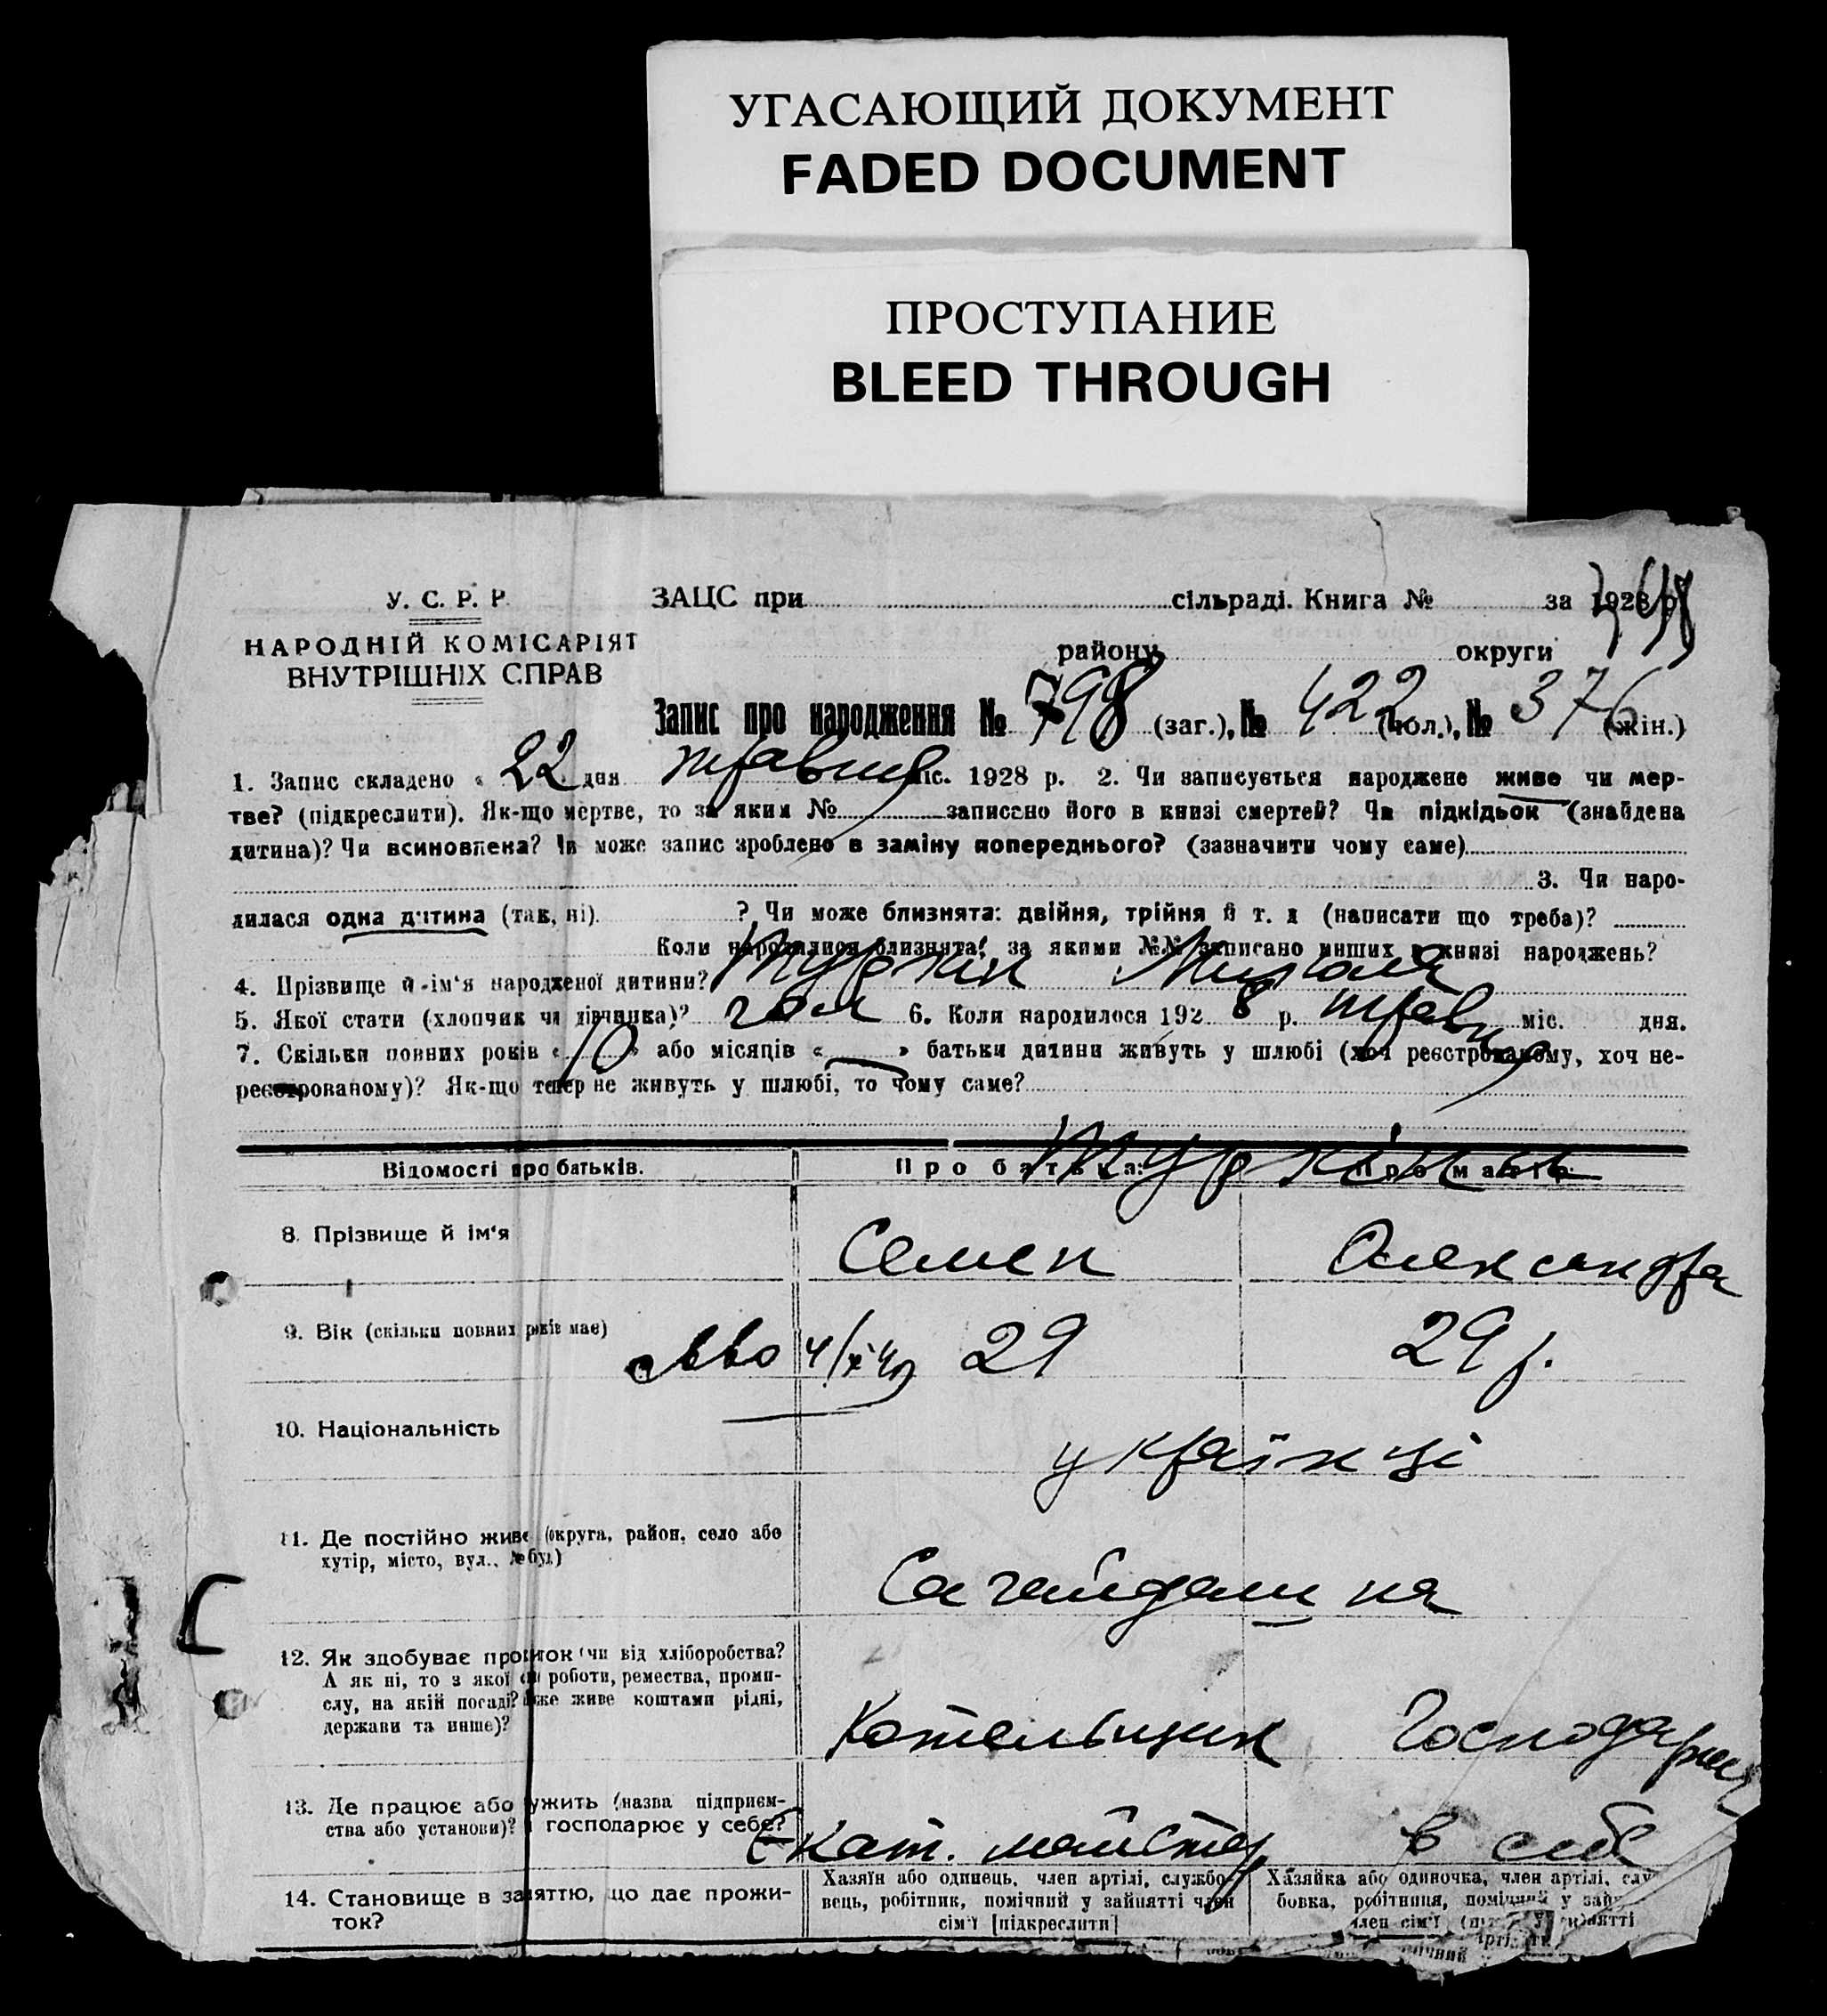 УГАСАЮЩИЙ ДОКУМЕНТ
FADED DOCUMENT
ПРОСТУПАНИЕ
BLEED THROUGH
У. С. Р. Р.
НАРОДНІЙ КОМІСАРІЯТ
ВНУТРІШНІХ СПРАВ
ЗАЦС при сільраді. Книга № за 1928 р.
району округи
Запис про народження № 798 (заг.), № 422 (чол.), № 376 (жін.)
1. Запис складено « 22 » дня травня міс. 1928 р. 2. Чи записується народжене живе чи мер-
тве? (підкреслити). Як-що мертве, то за яким № записано його в книзі смертей? Чи підкідьок (знайдена
дитина)? Чи всиновлена? Чи може запис зроблено в заміну попереднього? (зазначити чому саме)
3. Чи наро-
дилася одна дитина (так, ні). ? Чи може близнята: двійня, трійня й т. д (написати що треба)?
Коли народилися близнята, за якими №№ записано инших в книзі народжень?
4. Прізвище й ім'я народженої дитини? Туркін Микола
5. Якої стати (хлопчик чи дівчинка)? чол 6. Коли народилося 1928 р. травня міс. дня.
7. Скільки повних років « 10 » або місяців « — » батьки дитини живуть у шлюбі (хоч реєстрованому, хоч не-
реєстрованому)? Як-що тепер не живуть у шлюбі, то чому саме?
Відомості про батьків. Про батька: Туркіни Про матір:
8. Прізвище й ім'я Семен Олександра
9. Вік (скільки повних років має) 29 29 р.
10. Національність українці
11. Де постійно живе (округа, район, село або
хутір, місто, вул., № буд.)
Сагайдашна
12. Як здобуває прожиток (чи від хліборобства?
А як ні, то з якої роботи, ремества, проми-
слу, на якій посаді? може живе коштами рідні,
держави та инше)?
Котельщик Господарни
13. Де працює або служить (назва підприєм-
ства або установи)? господарює у себе?
Екат. майстер в себе
14. Становище в заняттю, що дає прожи-
ток?
Хазяїн або одинець, член артілі, службо-
вець, робітник, помічний у зайнятті член
сім'ї [підкреслити]
Хазяйка або одиночка, член артілі,
бовка, робітниця, помічний у
член сім'ї